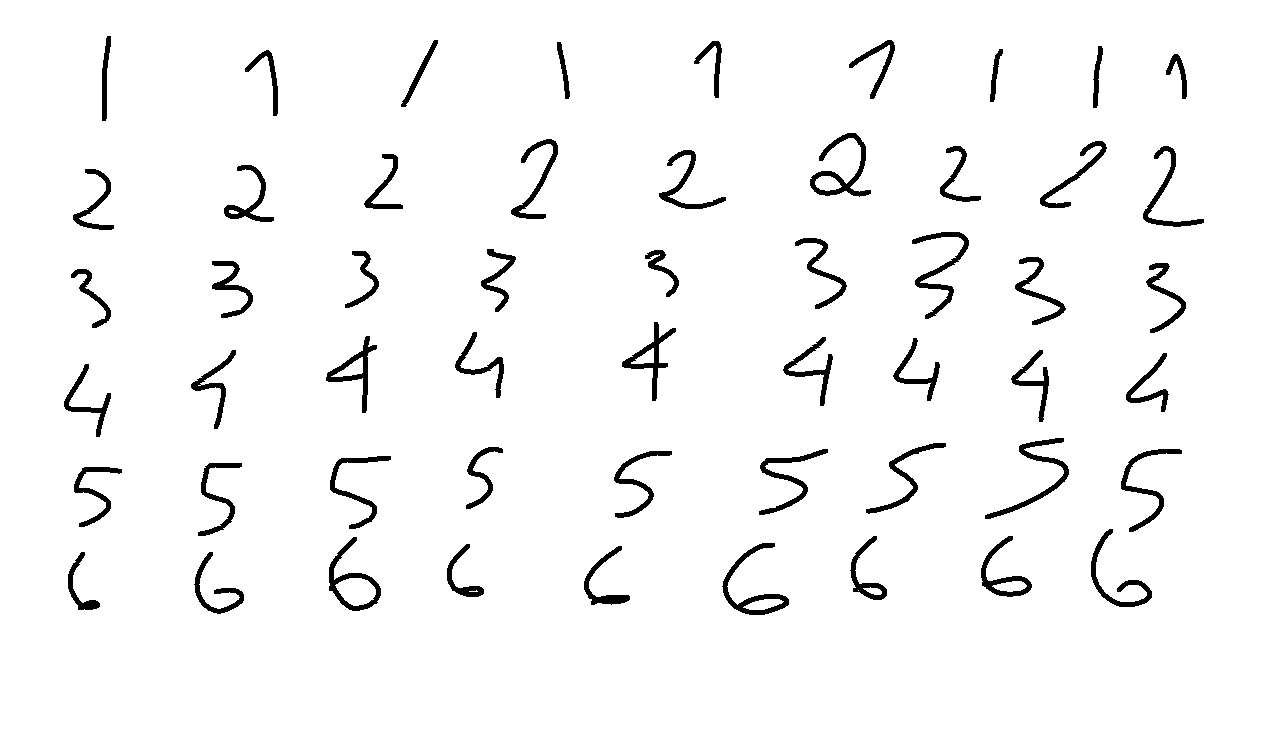 1 1 1 1 1 1 1 1 1
2 2 2 2 2 2 2 2 2
3 3 3 3 3 3 3 3 3
4 4 4 4 4 4 4 4 4
5 5 5 5 5 5 5 5 5
6 6 6 6 6 6 6 6 6